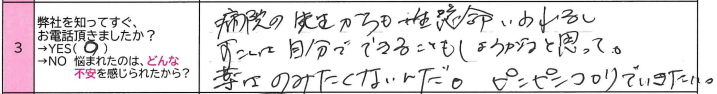 3
弊社を知ってすぐ、
お電話頂きましたか？
→YES( 〇 )
→NO 悩まれたのは、どんな
不安を感じられたから？
病院の先生からも 言われるし
すこしは自分でできることもしようかなと思って。
薬はのみたくないんだ。ピンピンコロリでいきたい。